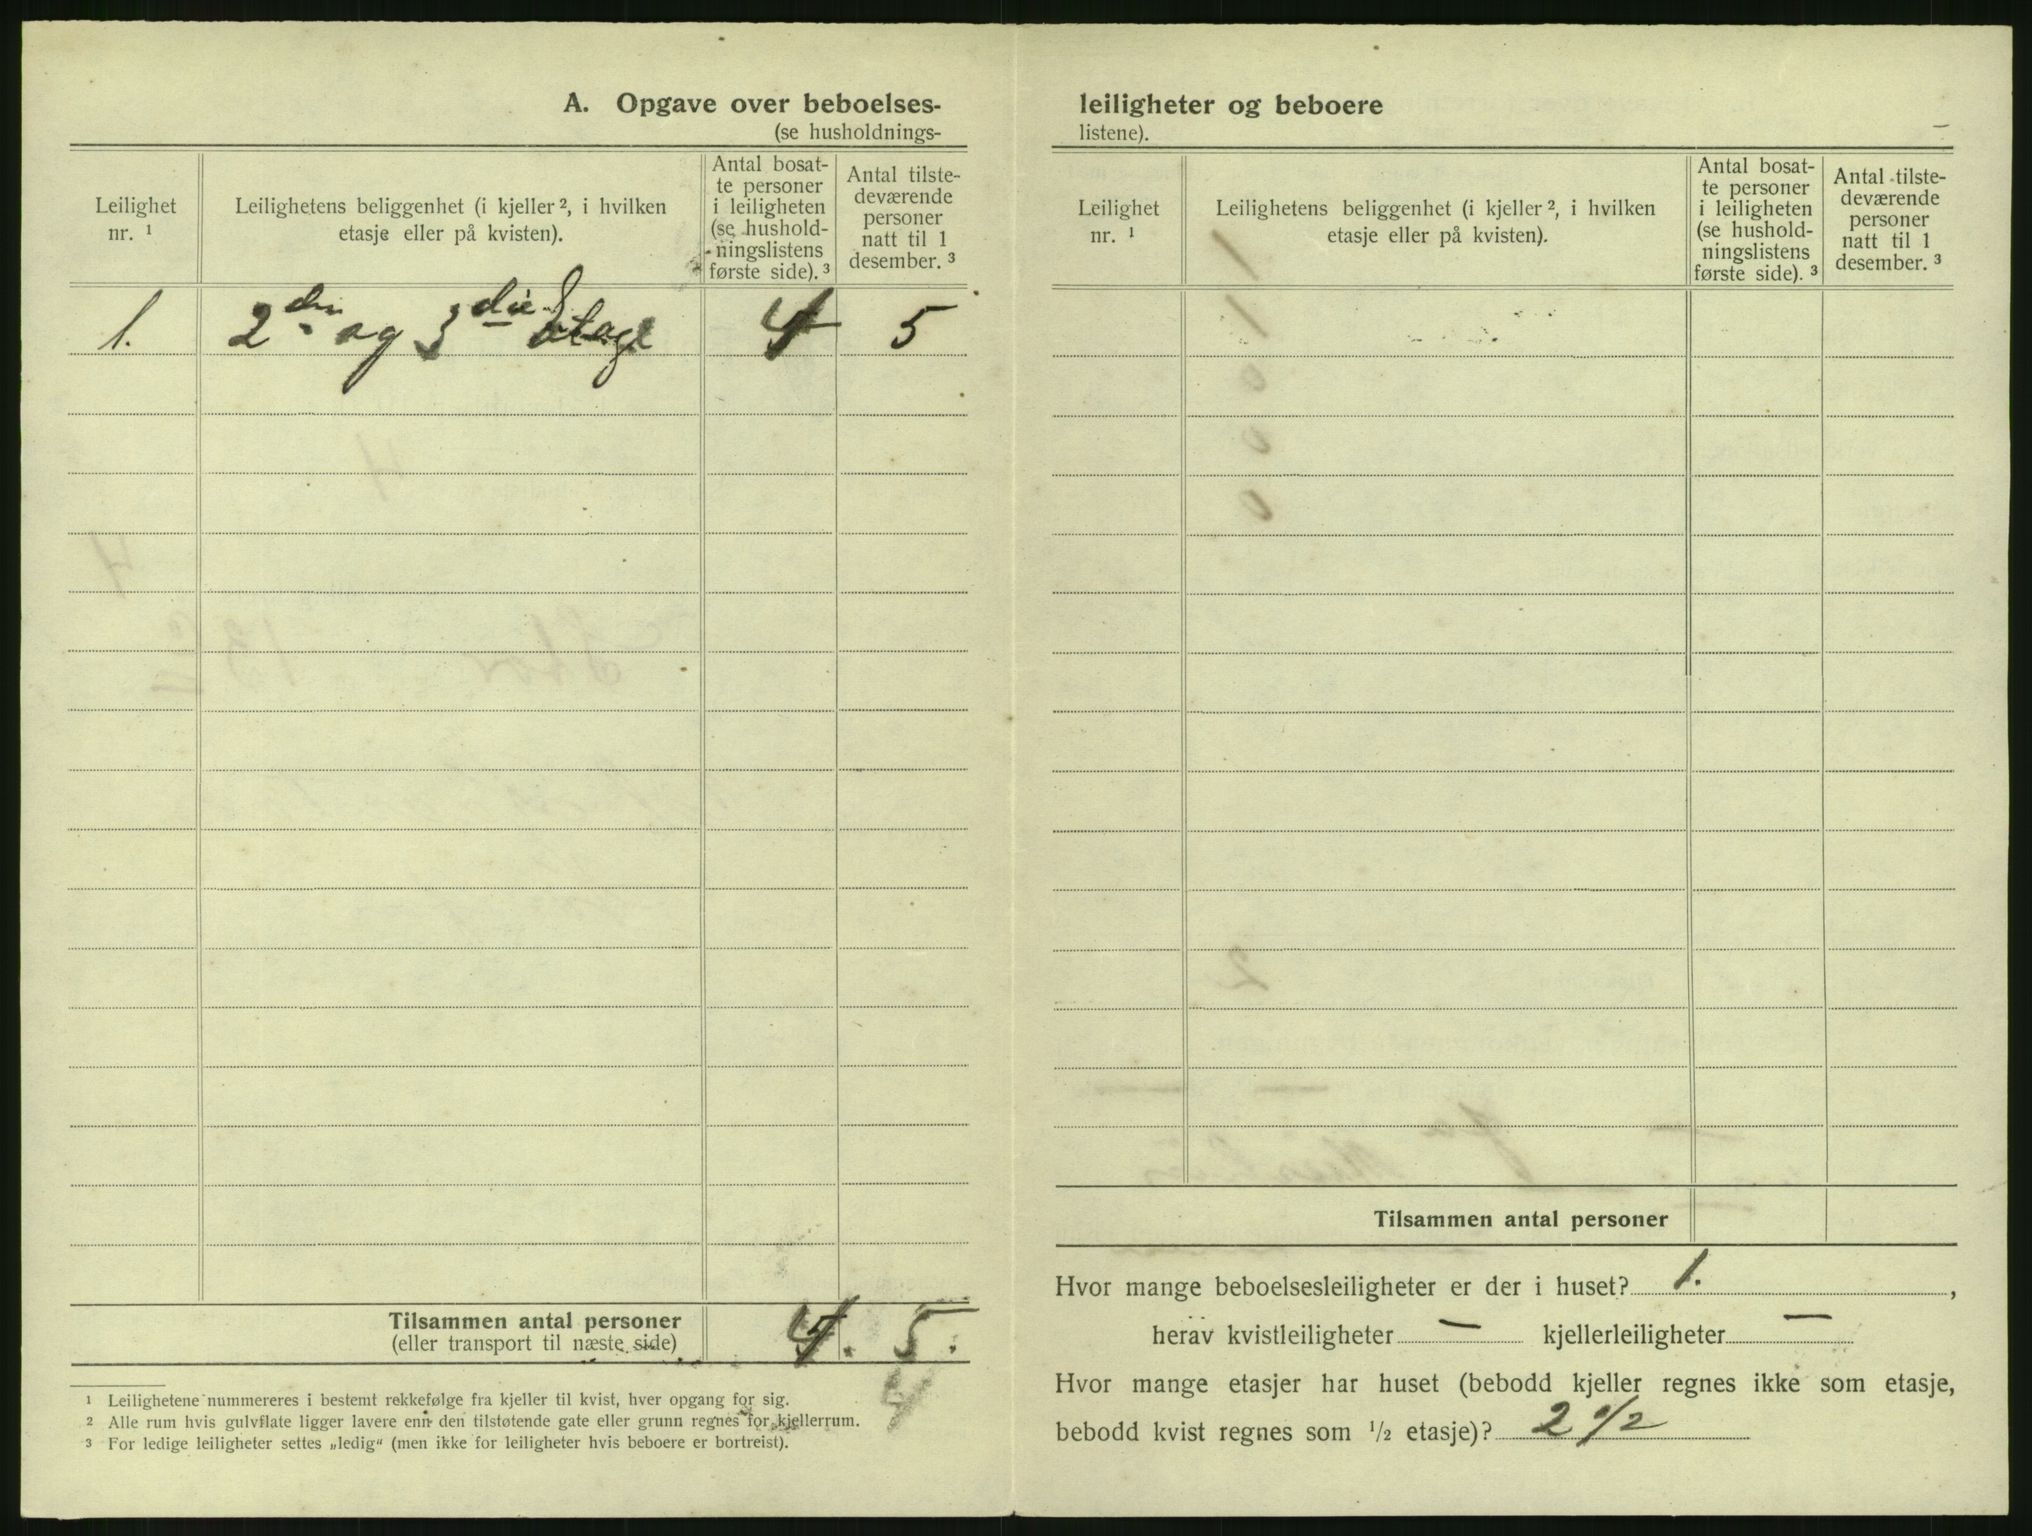 A. Opgave over beboelses-
(se husholdnings-
Leilighet
nr. ¹
Leilighetens beliggenhet (i kjeller ², i hvilken
etasje eller på kvisten).
Antal bosat-
te personer
i leiligheten
(se hushold-
ningslistens
første side). ³
Antal tilste-
deværende
personer
natt til 1
desember. ³
1. 2den og 3die Etage 4 5
Tilsammen antal personer 4. 5.
(eller transport til næste side)
4
¹ Leilighetene nummereres i bestemt rekkefølge fra kjeller til kvist, hver opgang for sig.
² Alle rum hvis gulvflate ligger lavere enn den tilstøtende gate eller grunn regnes for kjellerrum.
³ For ledige leiligheter settes „ledig“ (men ikke for leiligheter hvis beboere er bortreist).
leiligheter og beboere
listene).
Leilighet
nr. ¹
Leilighetens beliggenhet (i kjeller ², i hvilken
etasje eller på kvisten).
Antal bosat-
te personer
i leiligheten
(se hushold-
ningslistens
første side). ³
Antal tilste-
deværende
personer
natt til 1
desember. ³
Tilsammen antal personer
Hvor mange beboelsesleiligheter er der i huset? 1. ,
herav kvistleiligheter — kjellerleiligheter —
Hvor mange etasjer har huset (bebodd kjeller regnes ikke som etasje,
bebodd kvist regnes som ½ etasje)? 2 ½